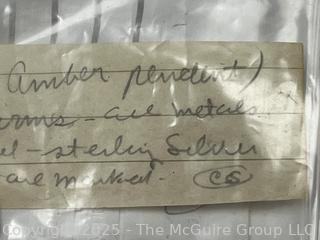 Amber pendent)
arms - all metals
el - sterling Silver
are marked. CS
© 2025 - The McGuire Group LLC